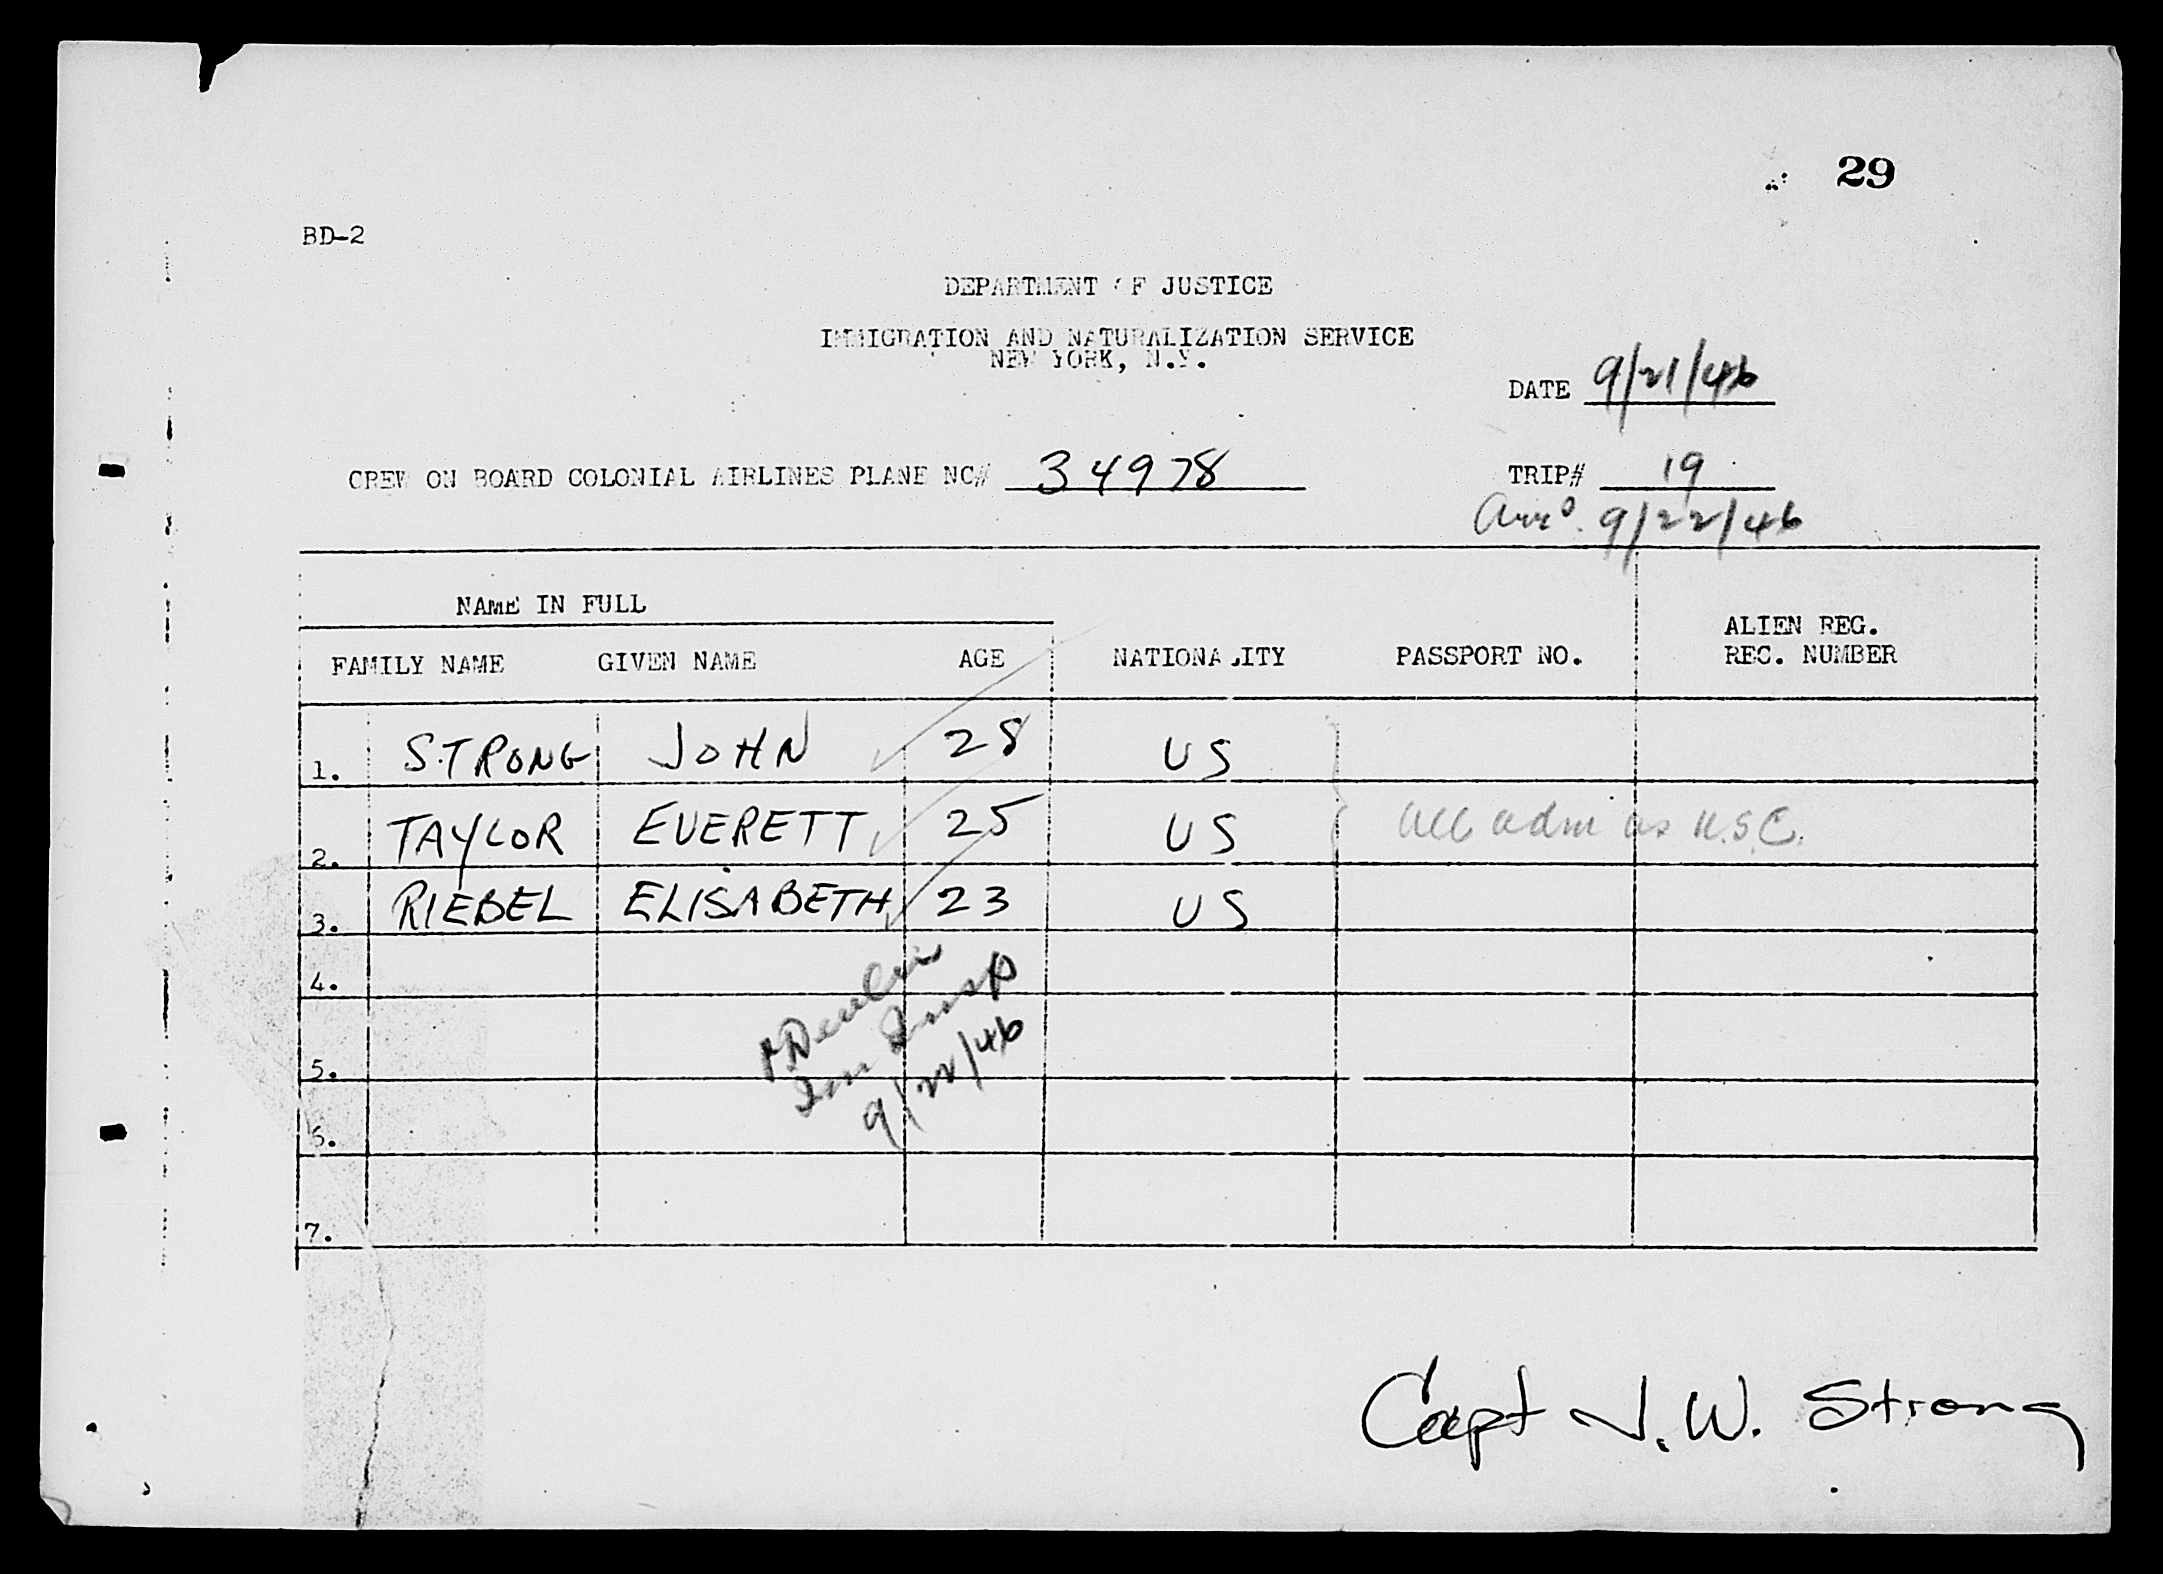 29
BD-2
DEPARTMENT OF JUSTICE
IMMIGRATION AND NATURALIZATION SERVICE
NEW YORK, N.Y.
DATE 9/21/46
CREW ON BOARD COLONIAL AIRLINES PLANE NC# 34978
TRIP# 19
Arr'd. 9/22/46
NAME IN FULL
FAMILY NAME GIVEN NAME AGE NATIONALITY PASSPORT NO. ALIEN REG. REC. NUMBER
1. STRONG JOHN 28 US
2. TAYLOR EVERETT 25 US All adm as U.S.C.
3. RIEBEL ELISABETH 23 US
4.
5.
6.
7.
Imm Insp
9/22/46
Capt J.W. Strong